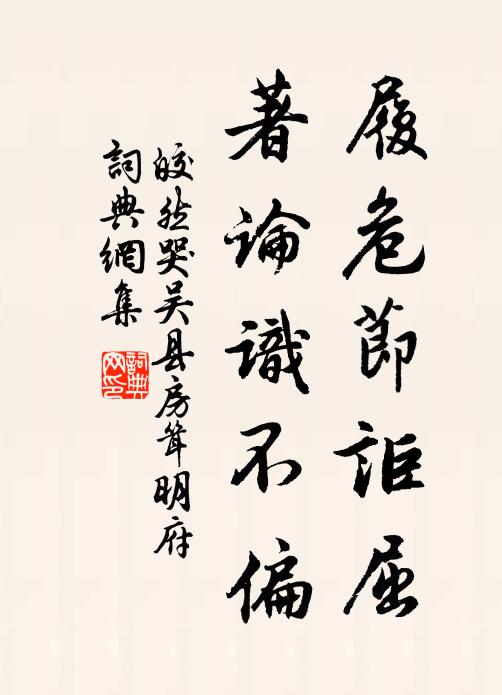 履危節詎屈
著論識不偏
皎然哭吴县房耸明府
詞典網集
詞典網印